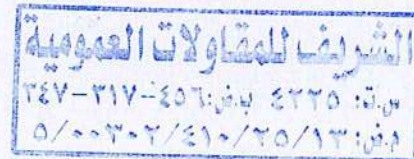 الشريف للمقاولات العمومية
س.ت: ٤٢٢٥ ب.ض: ٤٥٦-٣١٧-٢٤٧
م.ض: ٥/٠٠٣٠٢/٤١٠/٢٥/١٣